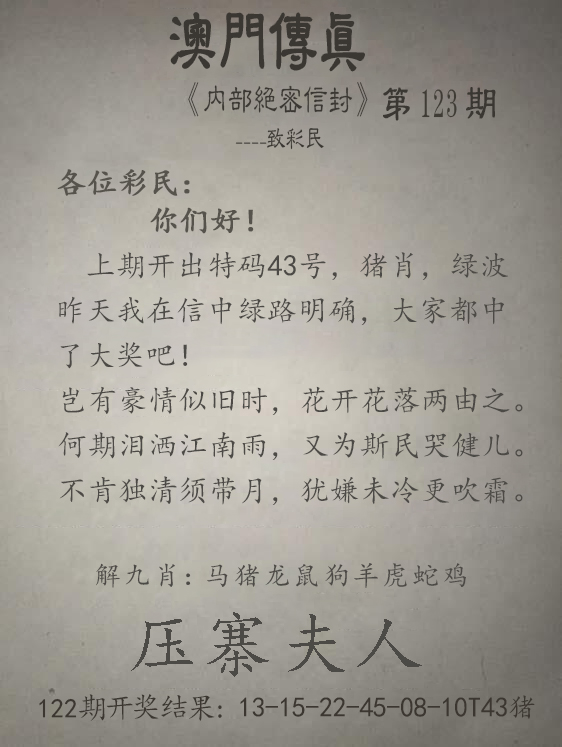 澳門傳眞
《内部絕密信封》第123期
----致彩民
各位彩民:
你们好!
上期开出特码43号，猪肖，绿波
昨天我在信中绿路明确，大家都中
了大奖吧!
岂有豪情似旧时，花开花落两由之。
何期泪洒江南雨，又为斯民哭健儿。
不肯独清须带月，犹嫌未冷更吹霜。
解九肖:马猪龙鼠狗羊虎蛇鸡
压寨夫人
122期开奖结果:13-15-22-45-08-10T43猪